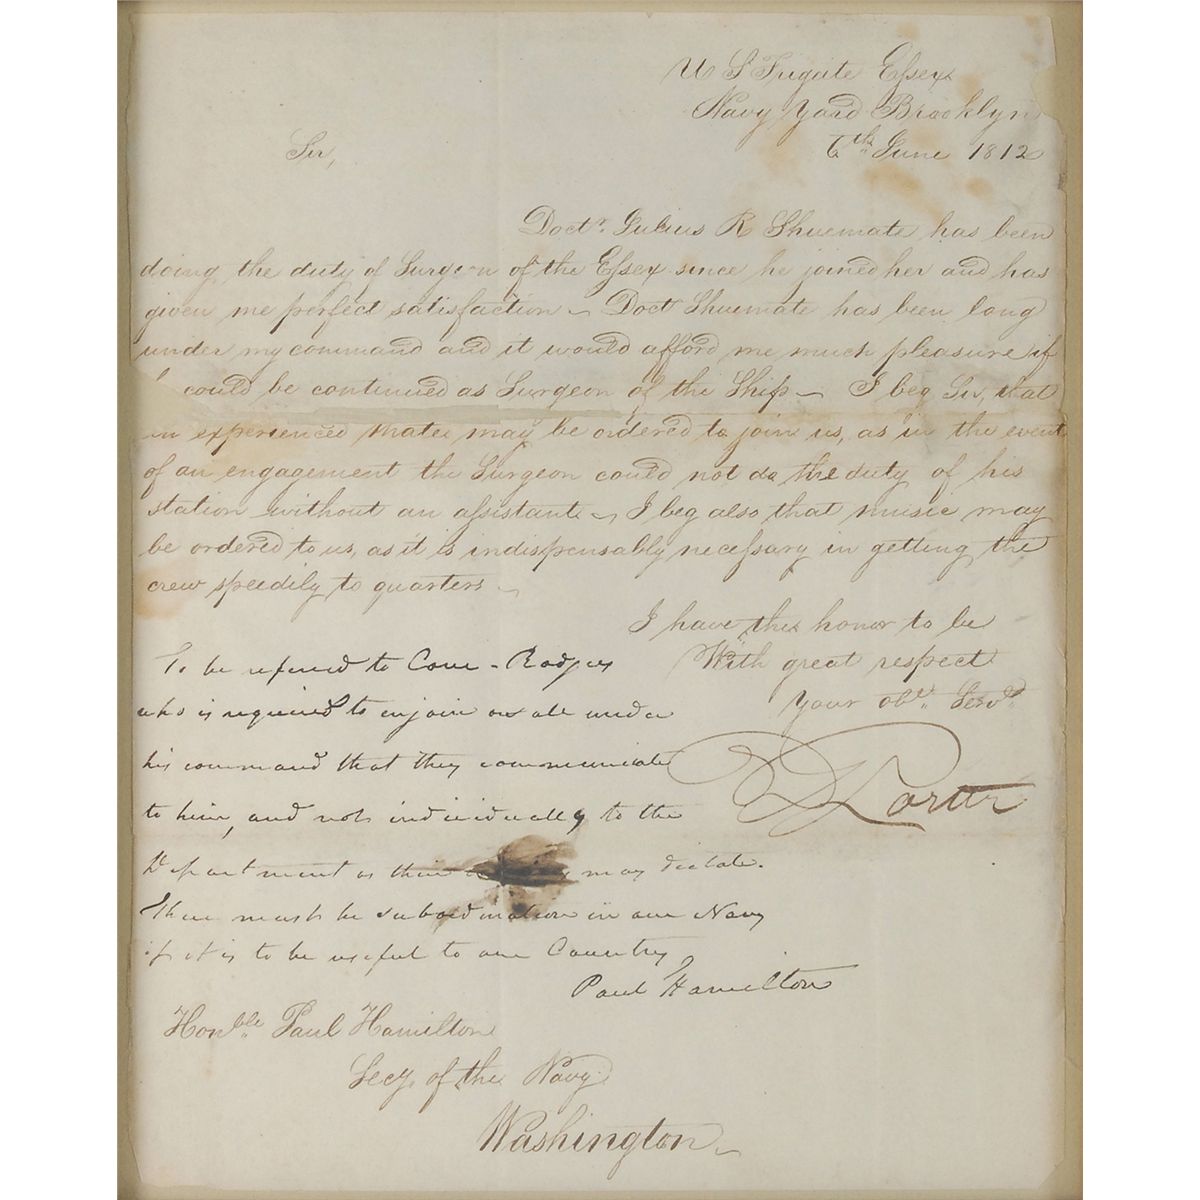 U S Frigate Essex
Navy Yard Brooklyn
6th June 1812
Sir,
Doctr. Julius R Shuemate has been
doing the duty of Surgeon of the Essex since he joined her and has
given me perfect satisfaction – Doct Shuemate has been long
under my command and it would afford me much pleasure if
could be continued as Surgeon of the Ship – I beg Sir, that
an experienced mate may be ordered to join us, as in the event
of an engagement the Surgeon could not do the duty of his
station without an assistant – I beg also that music may
be ordered to us, as it is indispensably necessary in getting the
crew speedily to quarters –
I have the honor to be
With great respect
Your obt. Servt.
D Porter
To be referred to Com Rodgers
who is required to enjoin on all under
his command that they communicate
to him, and not individually to the
Department as their may dictate.
There must be subordination in our Navy
if it is to be useful to our Country
Paul Hamilton
Honble. Paul Hamilton
Secy. of the Navy
Washington –